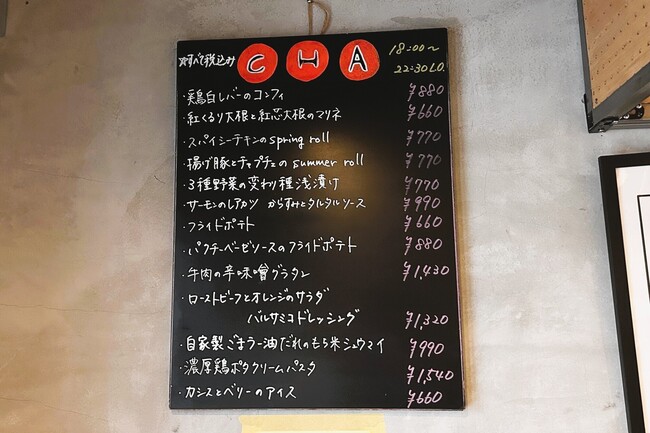 ※すべて税込み CHA 18:00〜
22:30L.O.
・鶏白レバーのコンフィ ¥880
・紅くるり大根と紅芯大根のマリネ ¥660
・スパイシーチキンのspring roll ¥770
・揚げ豚とチャプチェの summer roll ¥770
・3種野菜の変わり種浅漬け ¥770
・サーモンのレアカツ からすみとタルタルソース ¥990
・フライドポテト ¥660
・パクチーベーゼソースのフライドポテト ¥880
・牛肉の辛味噌グラタン ¥1,430
・ローストビーフとオレンジのサラダ
バルサミコドレッシング ¥1,320
・自家製ごまラー油だれのもち米シュウマイ ¥990
・濃厚鶏ポタクリームパスタ ¥1,540
・カシスとベリーのアイス ¥660